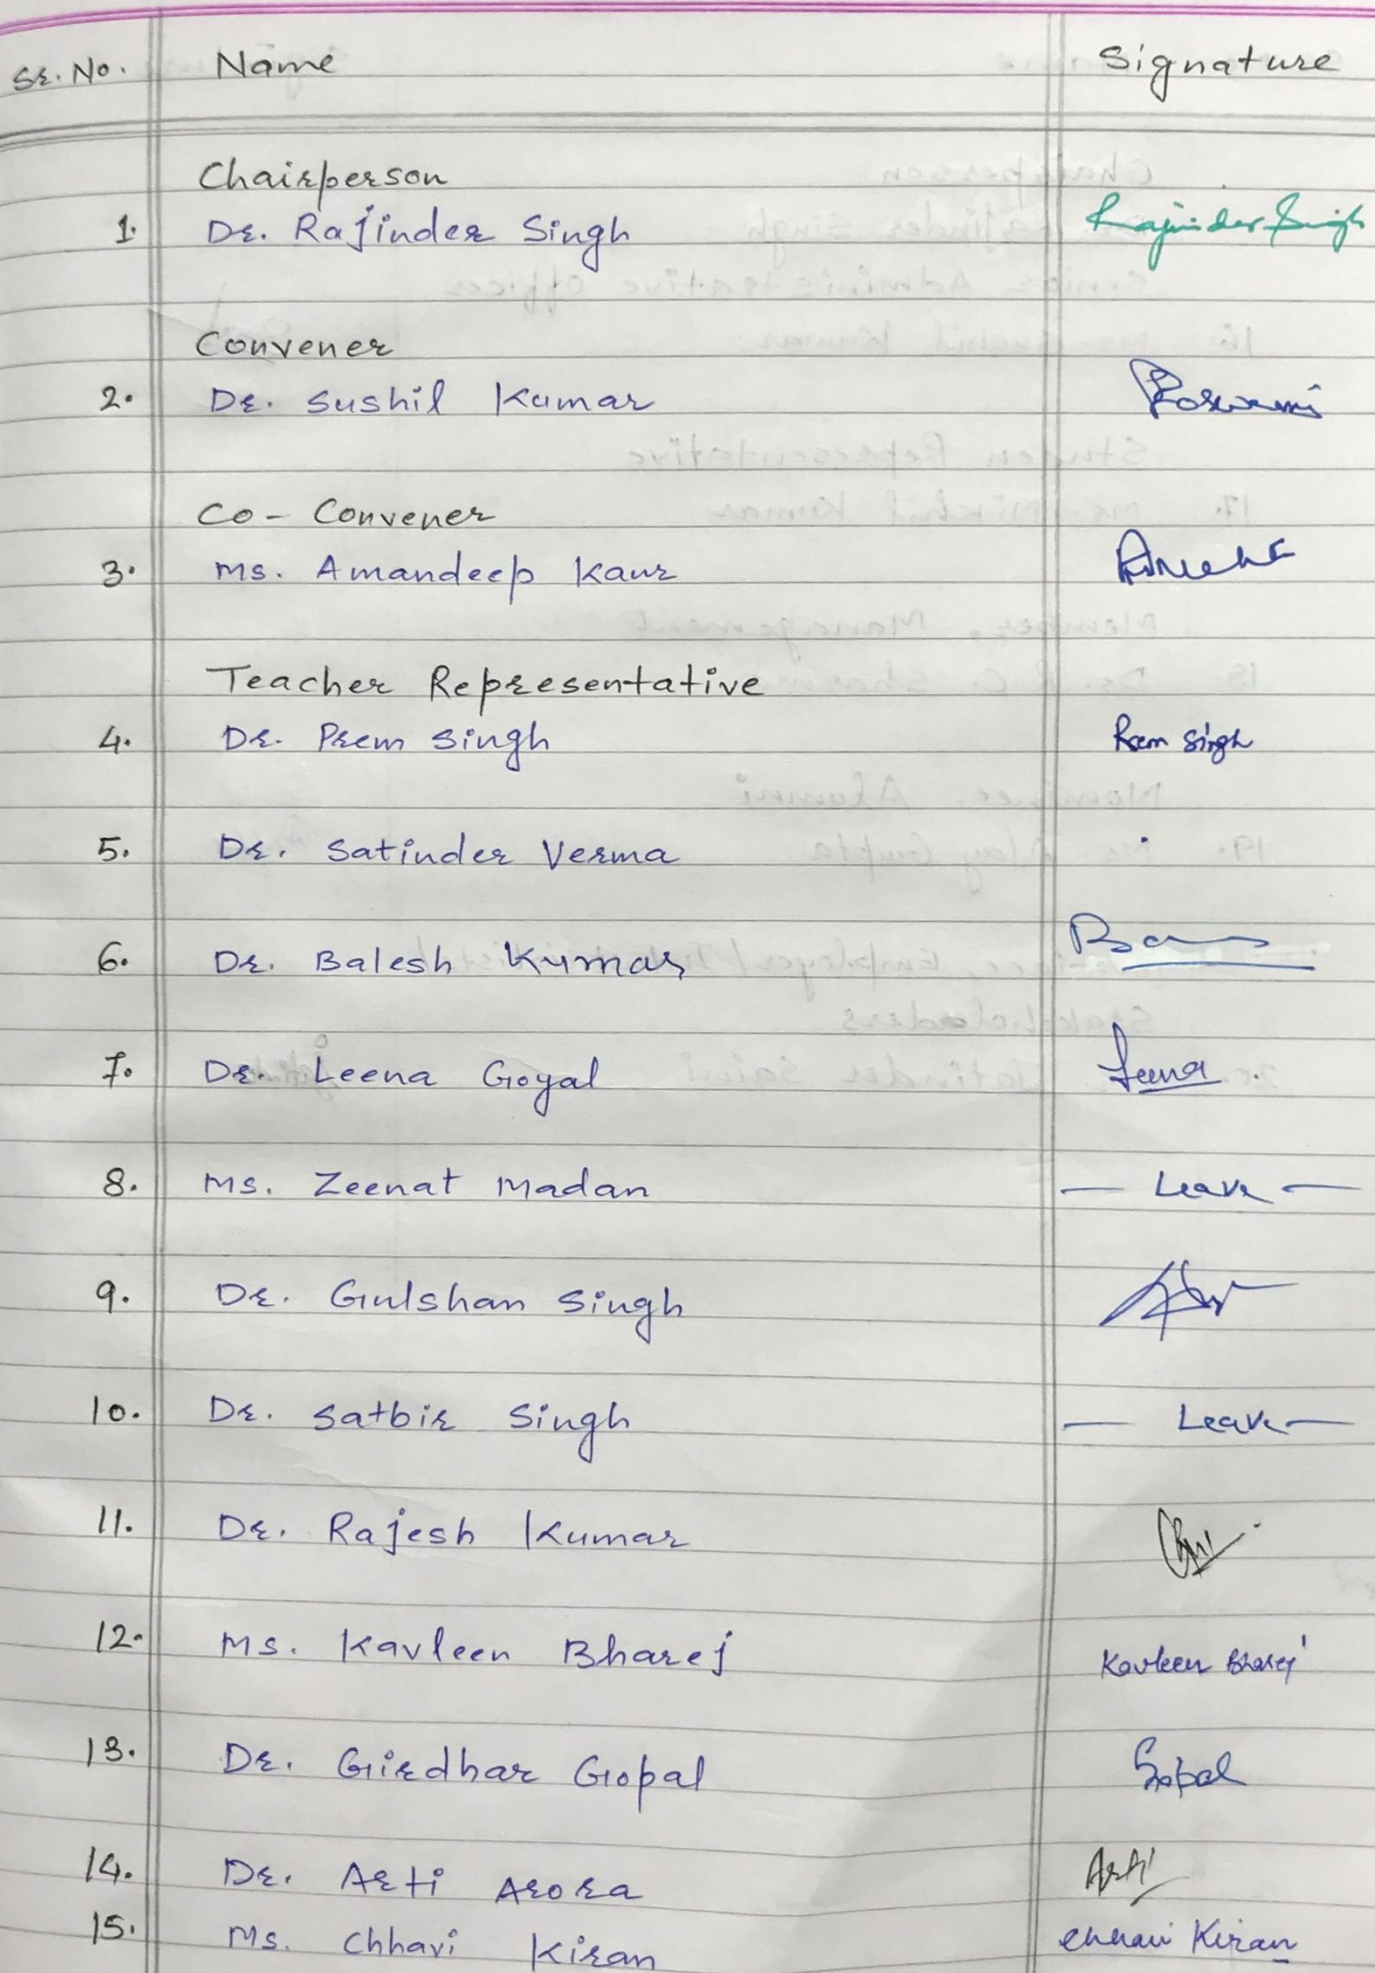 Sr. No. Name Signature
Chairperson
1. Dr. Rajinder Singh Rajinder Singh
Convener
2. Dr. Sushil Kumar Goswami
Co - Convener
3. Ms. Amandeep Kaur
Teacher Representative
4. Dr. Prem Singh Prem Singh
5. Dr. Satinder Verma
6. Dr. Balesh Kumar
7. Dr. Leena Goyal Leena
8. Ms. Zeenat Madan — Leave —
9. Dr. Gulshan Singh
10. Dr. Satbir Singh — Leave —
11. Dr. Rajesh Kumar
12. Ms. Kavleen Bharej Kavleen Bharej
13. Dr. Girdhar Gopal Gopal
14. Dr. Arti Arora Arti
15. Ms. Chhavi Kiran Chhavi Kiran